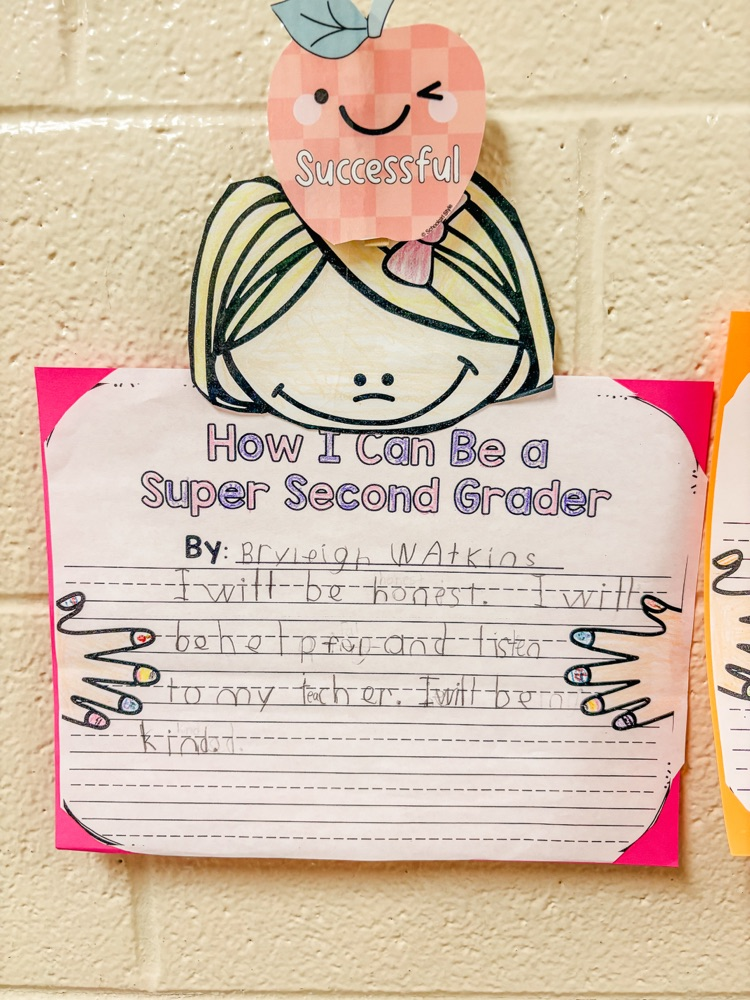 Successful
How I Can Be a
Super Second Grader
By: Bryleigh WAtkins
I will be honest. I will
be and listen
to my teacher. I will be
kind.